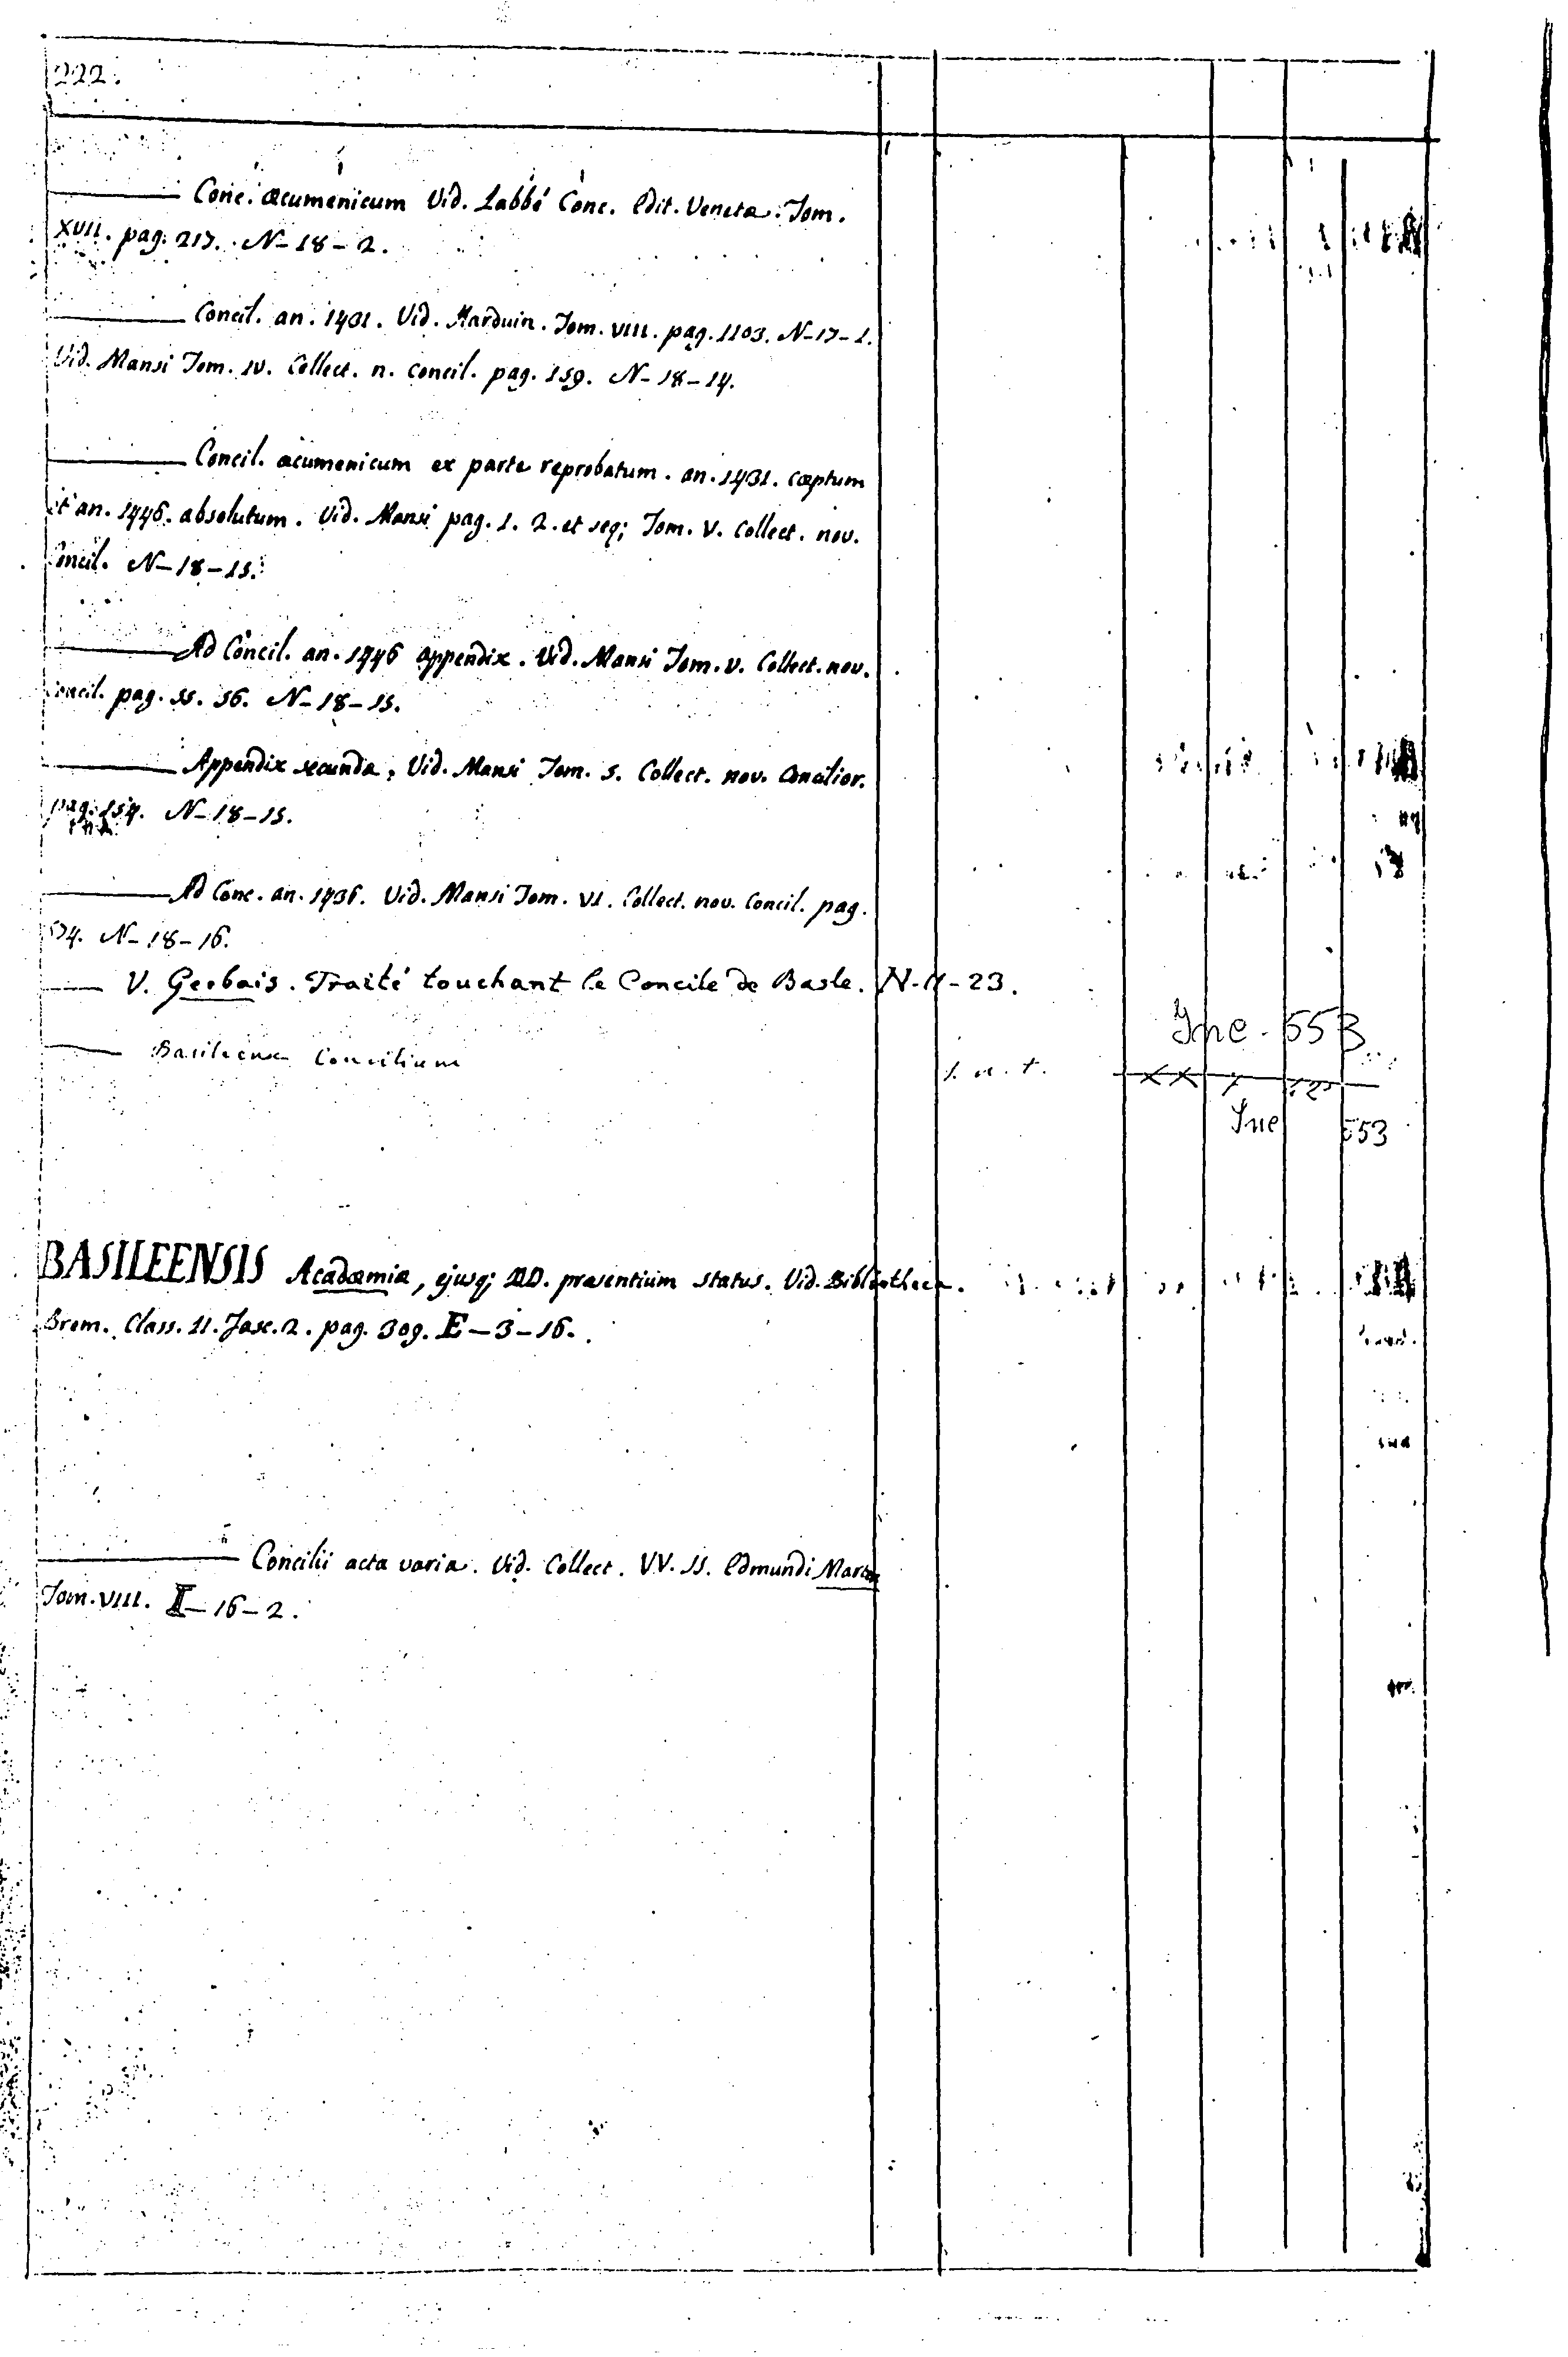 222.
——— Conc. œcumenicum Vid. Labbé Conc. Edit. Veneta. Tom.
XVII. pag. 217. N-18-2.
——— Concil. an. 1431. Vid. Harduin. Tom. VIII. pag. 1103. N-17-1.
Vid. Mansi Tom. IV. Collect. n. concil. pag. 159. N-18-14.
——— Concil. œcumenicum ex parte reprobatum. an. 1431. cœptum
et an. 1446. absolutum. Vid. Mansi pag. 1. 2. et seq; Tom. V. Collect. nov.
Concil. N-18-15.
——— Ad Concil. an. 1446 appendix. Vid. Mansi Tom. V. Collect. nov.
concil. pag. 55. 56. N-18-15.
——— Appendix secunda, Vid. Mansi Tom. 5. Collect. nov. Concilior.
pag. 154. N-18-15.
——— Ad Conc. an. 1436. Vid. Mansi Tom. VI. Collect. nov. Concil. pag.
N-18-16.
— V. Gerbais. Traité touchant le Concile de Basle. N-11-23.
Inc. 553
— Basileense Concilium s. a. t. XX
Inc 553
BASILEENSIS Academia, ejusq; DD. præsentium status. Vid. Bibliotheca.
Brem. Class. II. Fasc. 2. pag. 309. E-3-16.
——— Concilii acta varia. Vid. Collect. VV. SS. Edmundi Marten
Tom. VIII. I-16-2.